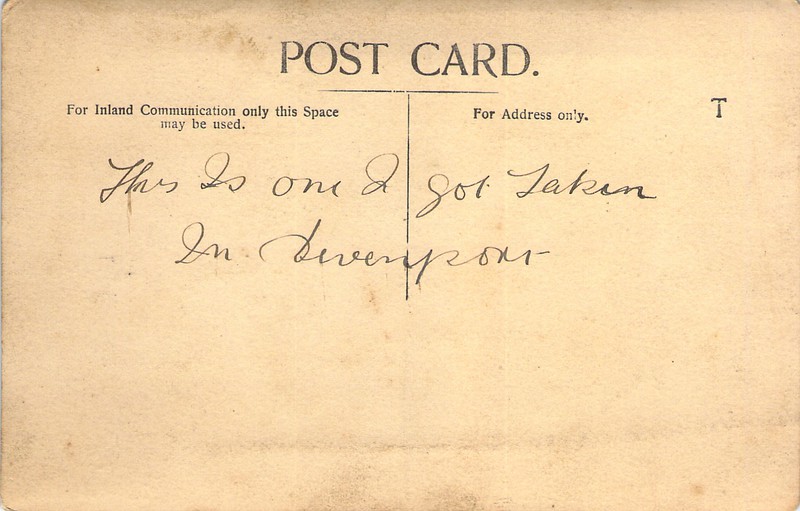 POST CARD.
For Inland Communication only this Space
may be used.
For Address only.
T
This Is one I got Taken
In Devenport